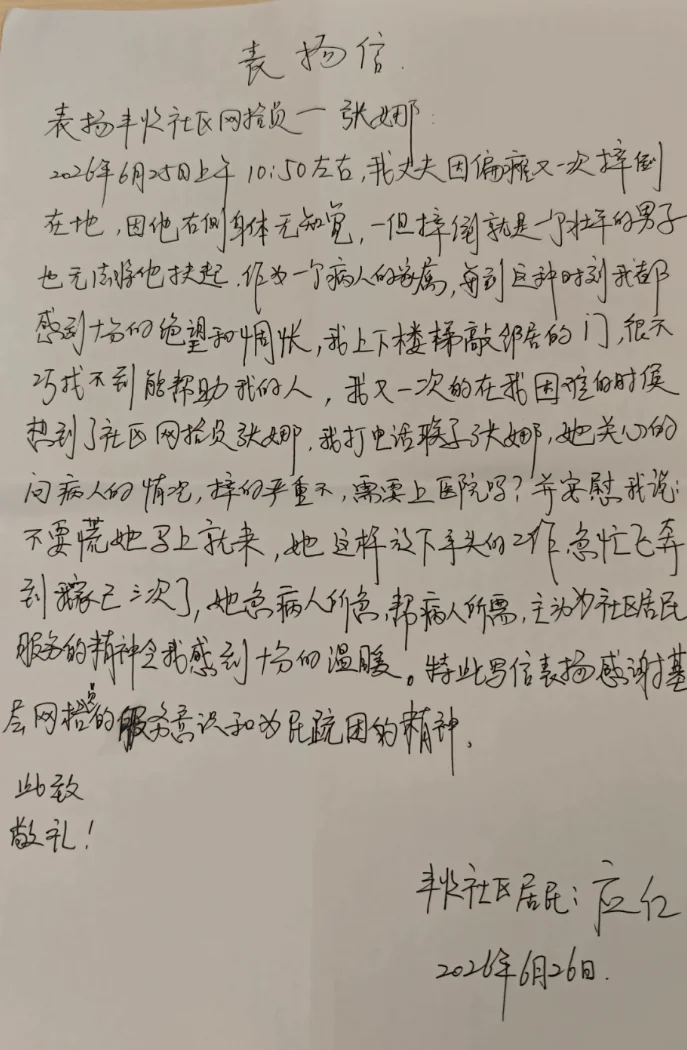 表扬信.
表扬丰收社区网格员一张娜:
2026年6月25日上午10:50左右,我丈夫因偏瘫又一次摔倒
在地,因他右侧身体无知觉,一但摔倒就是一个壮年的男子
也无法将他扶起.作为一个病人的家属,每到这种时刻我都
感到十分的绝望和惆怅,我上下楼梯敲邻居的门,很不
巧找不到能帮助我的人,我又一次的在我困难的时候
想到了社区网格员张娜.我打电话联系了张娜,她关心的
问病人的情况,摔的严重不,需要上医院吗?并安慰我说:
不要慌她马上就来,她这样放下手头的工作急忙飞奔
到我家已三次了,她急病人所急,帮病人所需,主动为社区居民
服务的精神令我感到十分的温暖。特此写信表扬感谢基
层网格员的服务意识和为民疏困的精神.
此致
敬礼!
丰收社区居民:应红
2026年6月26日.